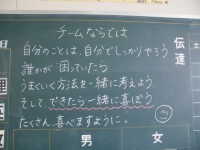 チームならでは
自分のことは、自分でしっかりやろう
誰かが困っていたら
うまくいく方法を一緒に考えよう
そして、できたら一緒に喜ぼう
たくさん、喜べますように。
伝達
男
女